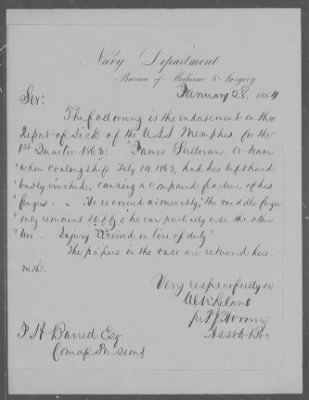 Navy Department
Bureau of Medicine & Surgery
January 28, 1864
Sir:
The following is the endorsement on the
Report of Sick of the U.S.S. Memphis for the
1st Quarter 1863: "James Sullivan
"when coaling ship Feby 14, 1863, had his left hand
"badly crushed, causing a compound fracture of his
"fingers. He recovered admirably, the middle finger
"only remains stiff; he can partially use the other
"two. Injury received in line of duty"
The papers in the case are returned here-
with.
Very respectfully
Asst to Bu
J H Barrett Esq
Com of Pensions